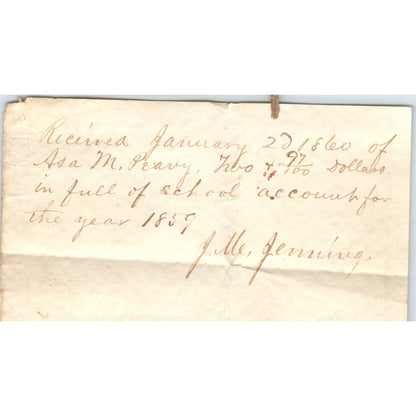 Recieved January 2d 1860 of
Asa M. Peavy, Two & 97/100 Dollars
in full of school account for
the year 1859
J. Mc. Jenning.